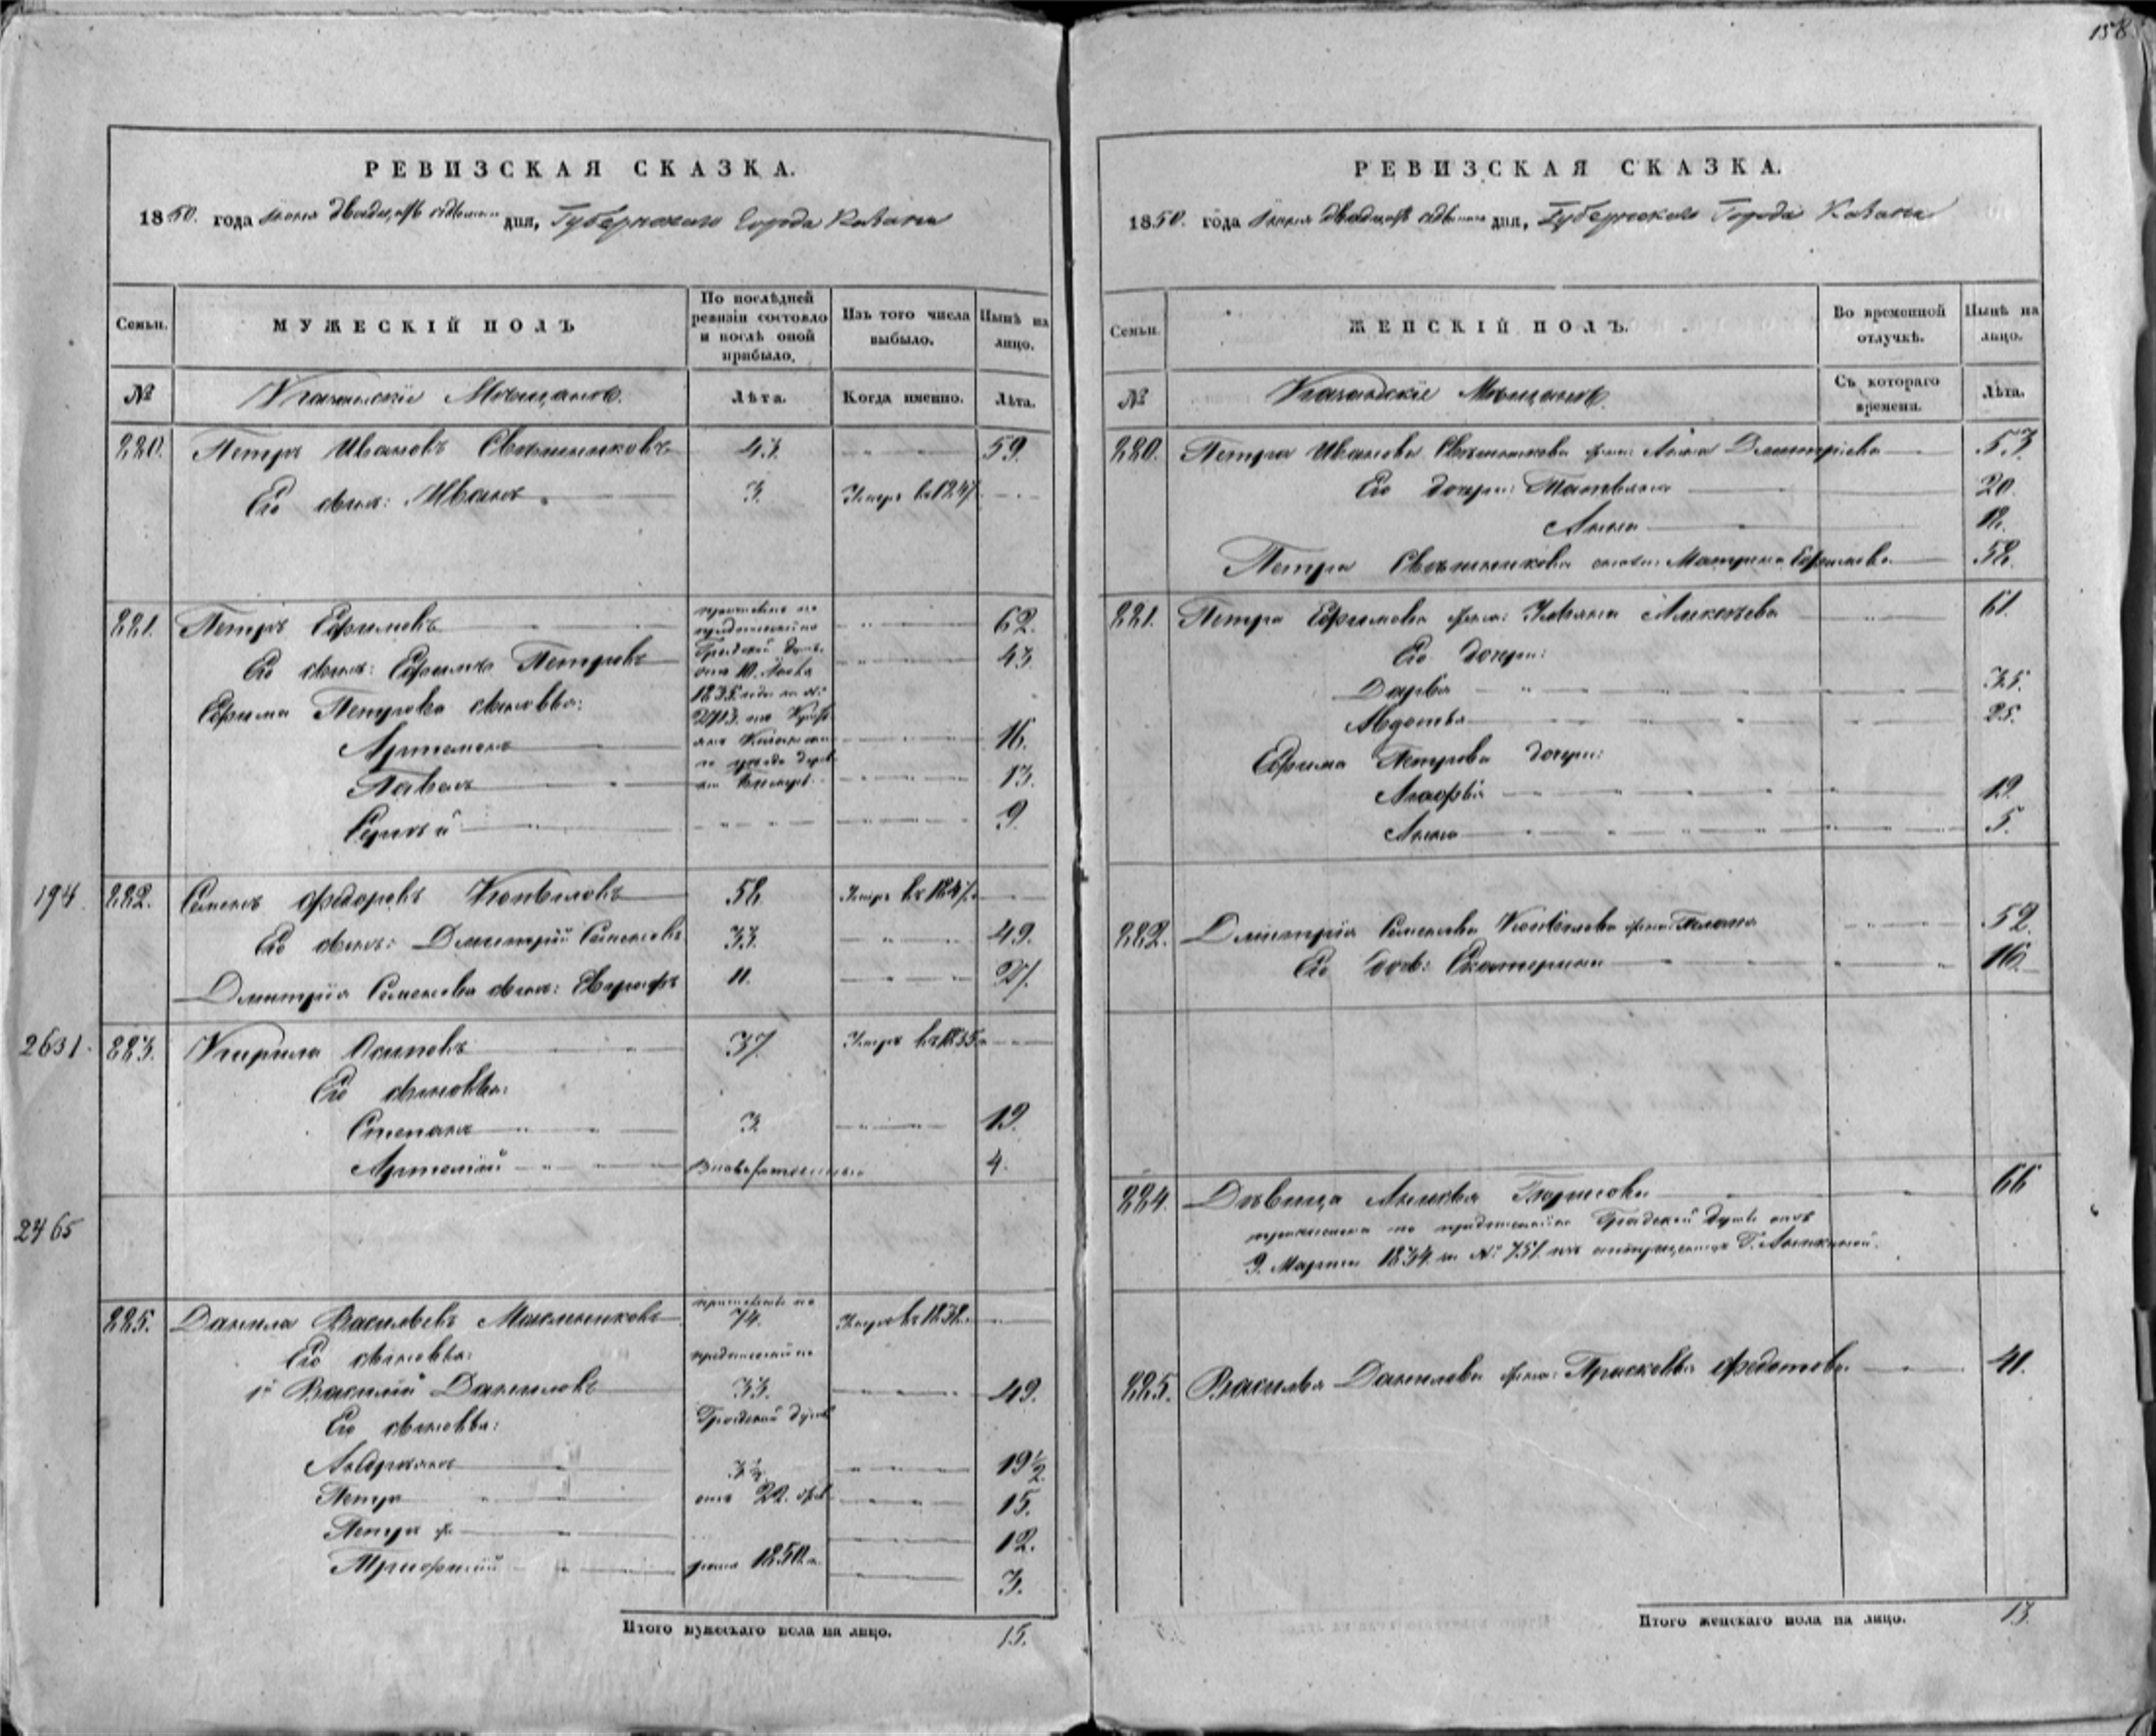 158
РЕВИЗСКАЯ СКАЗКА.
1850. года Іюня двадцать седьмаго дня, Губернскаго Города Казани
Семьи.
МУЖЕСКІЙ ПОЛЪ
По послѣдней ревизіи состояло и послѣ оной прибыло.
Изъ того числа выбыло.
Нынѣ на лицо.
№
Казанскіе Мѣщане.
Лѣта.
Когда именно.
Лѣта.
880. Петръ Ивановъ Свѣшниковъ 43. 59.
Его сынъ: Иванъ 3. Умеръ въ 1847.
881. Петръ Ефимовъ 62.
Его сынъ: Ефимъ Петровъ 43.
Ефима Петрова сыновья:
Артамонъ 16.
Павелъ 13.
Сергѣй 9.
по предписанію
Градской Думы
отъ 10.
1835 года за №
194. 882. Семенъ Федоровъ 58. Умеръ въ 1847.
Его сынъ: Дмитрій Семеновъ 33. 49.
Дмитрія Семенова сынъ: Евграфъ 11. 27.
2631. 883. Кирила Осиповъ 37. Умеръ въ 1835.
Его сыновья:
Степанъ 3. 19.
Артемій 4.
2465
885. Данила Васильевъ Масленниковъ 74. Умеръ въ 1838.
Его сыновья:
1й Василій Даниловъ 33. 49.
Его сыновья:
Андреянъ 3½. 19½.
Петръ 15.
Петръ 12.
Трифилій 3.
по
предписанію
Градской Думы
отъ 22.
1850.
Итого мужескаго пола на лицо. 15.
РЕВИЗСКАЯ СКАЗКА.
1850. года Іюня двадцать седьмаго дня, Губернскаго Города Казани
Семьи.
ЖЕНСКІЙ ПОЛЪ.
Во временной отлучкѣ.
Нынѣ на лицо.
№
Казанскіе Мѣщане.
Съ котораго времени.
Лѣта.
880. Петра Иванова Свѣшникова жена: Анна Дмитріева 53.
Его дочери: Татьяна 20.
Анна 18.
Петра Свѣшникова Матрена Ефимова 58.
881. Петра Ефимова жена: Ульяна Алексѣева 61.
Его дочери:
Дарья 35.
Авдотья 25.
Ефима Петрова дочери:
Агафья 19.
Анна 5.
882. Дмитрія Семенова жена: 52.
Его дочь: Екатерина 16.
884. Дѣвица Борисова 66
по предписанію Градской Думы отъ
9. Марта 1834. за № 751. изъ
885. Василья Данилова жена: Прасковья Федотова. 41.
Итого женскаго пола на лицо. 13.